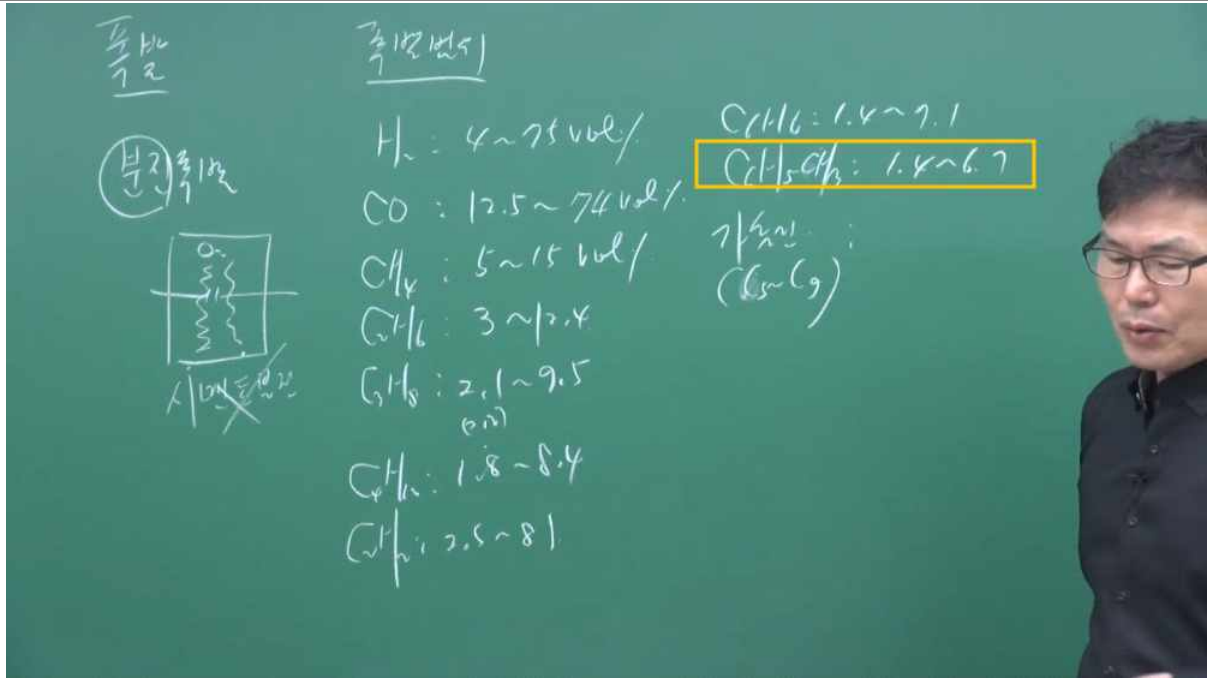 폭발
분진폭발
O₂
시멘트분진
폭발범위
H₂ : 4~75 vol%
CO : 12.5~74 vol%
CH₄ : 5~15 vol%
C₂H₆ : 3~12.4
C₃H₈ : 2.1~9.5
C₄H₁₀ : 1.8~8.4
C₂H₂ : 2.5~81
C₆H₆ : 1.4~7.1
C₆H₅CH₃ : 1.4~6.7
가솔린 :
(C₅~C₉)